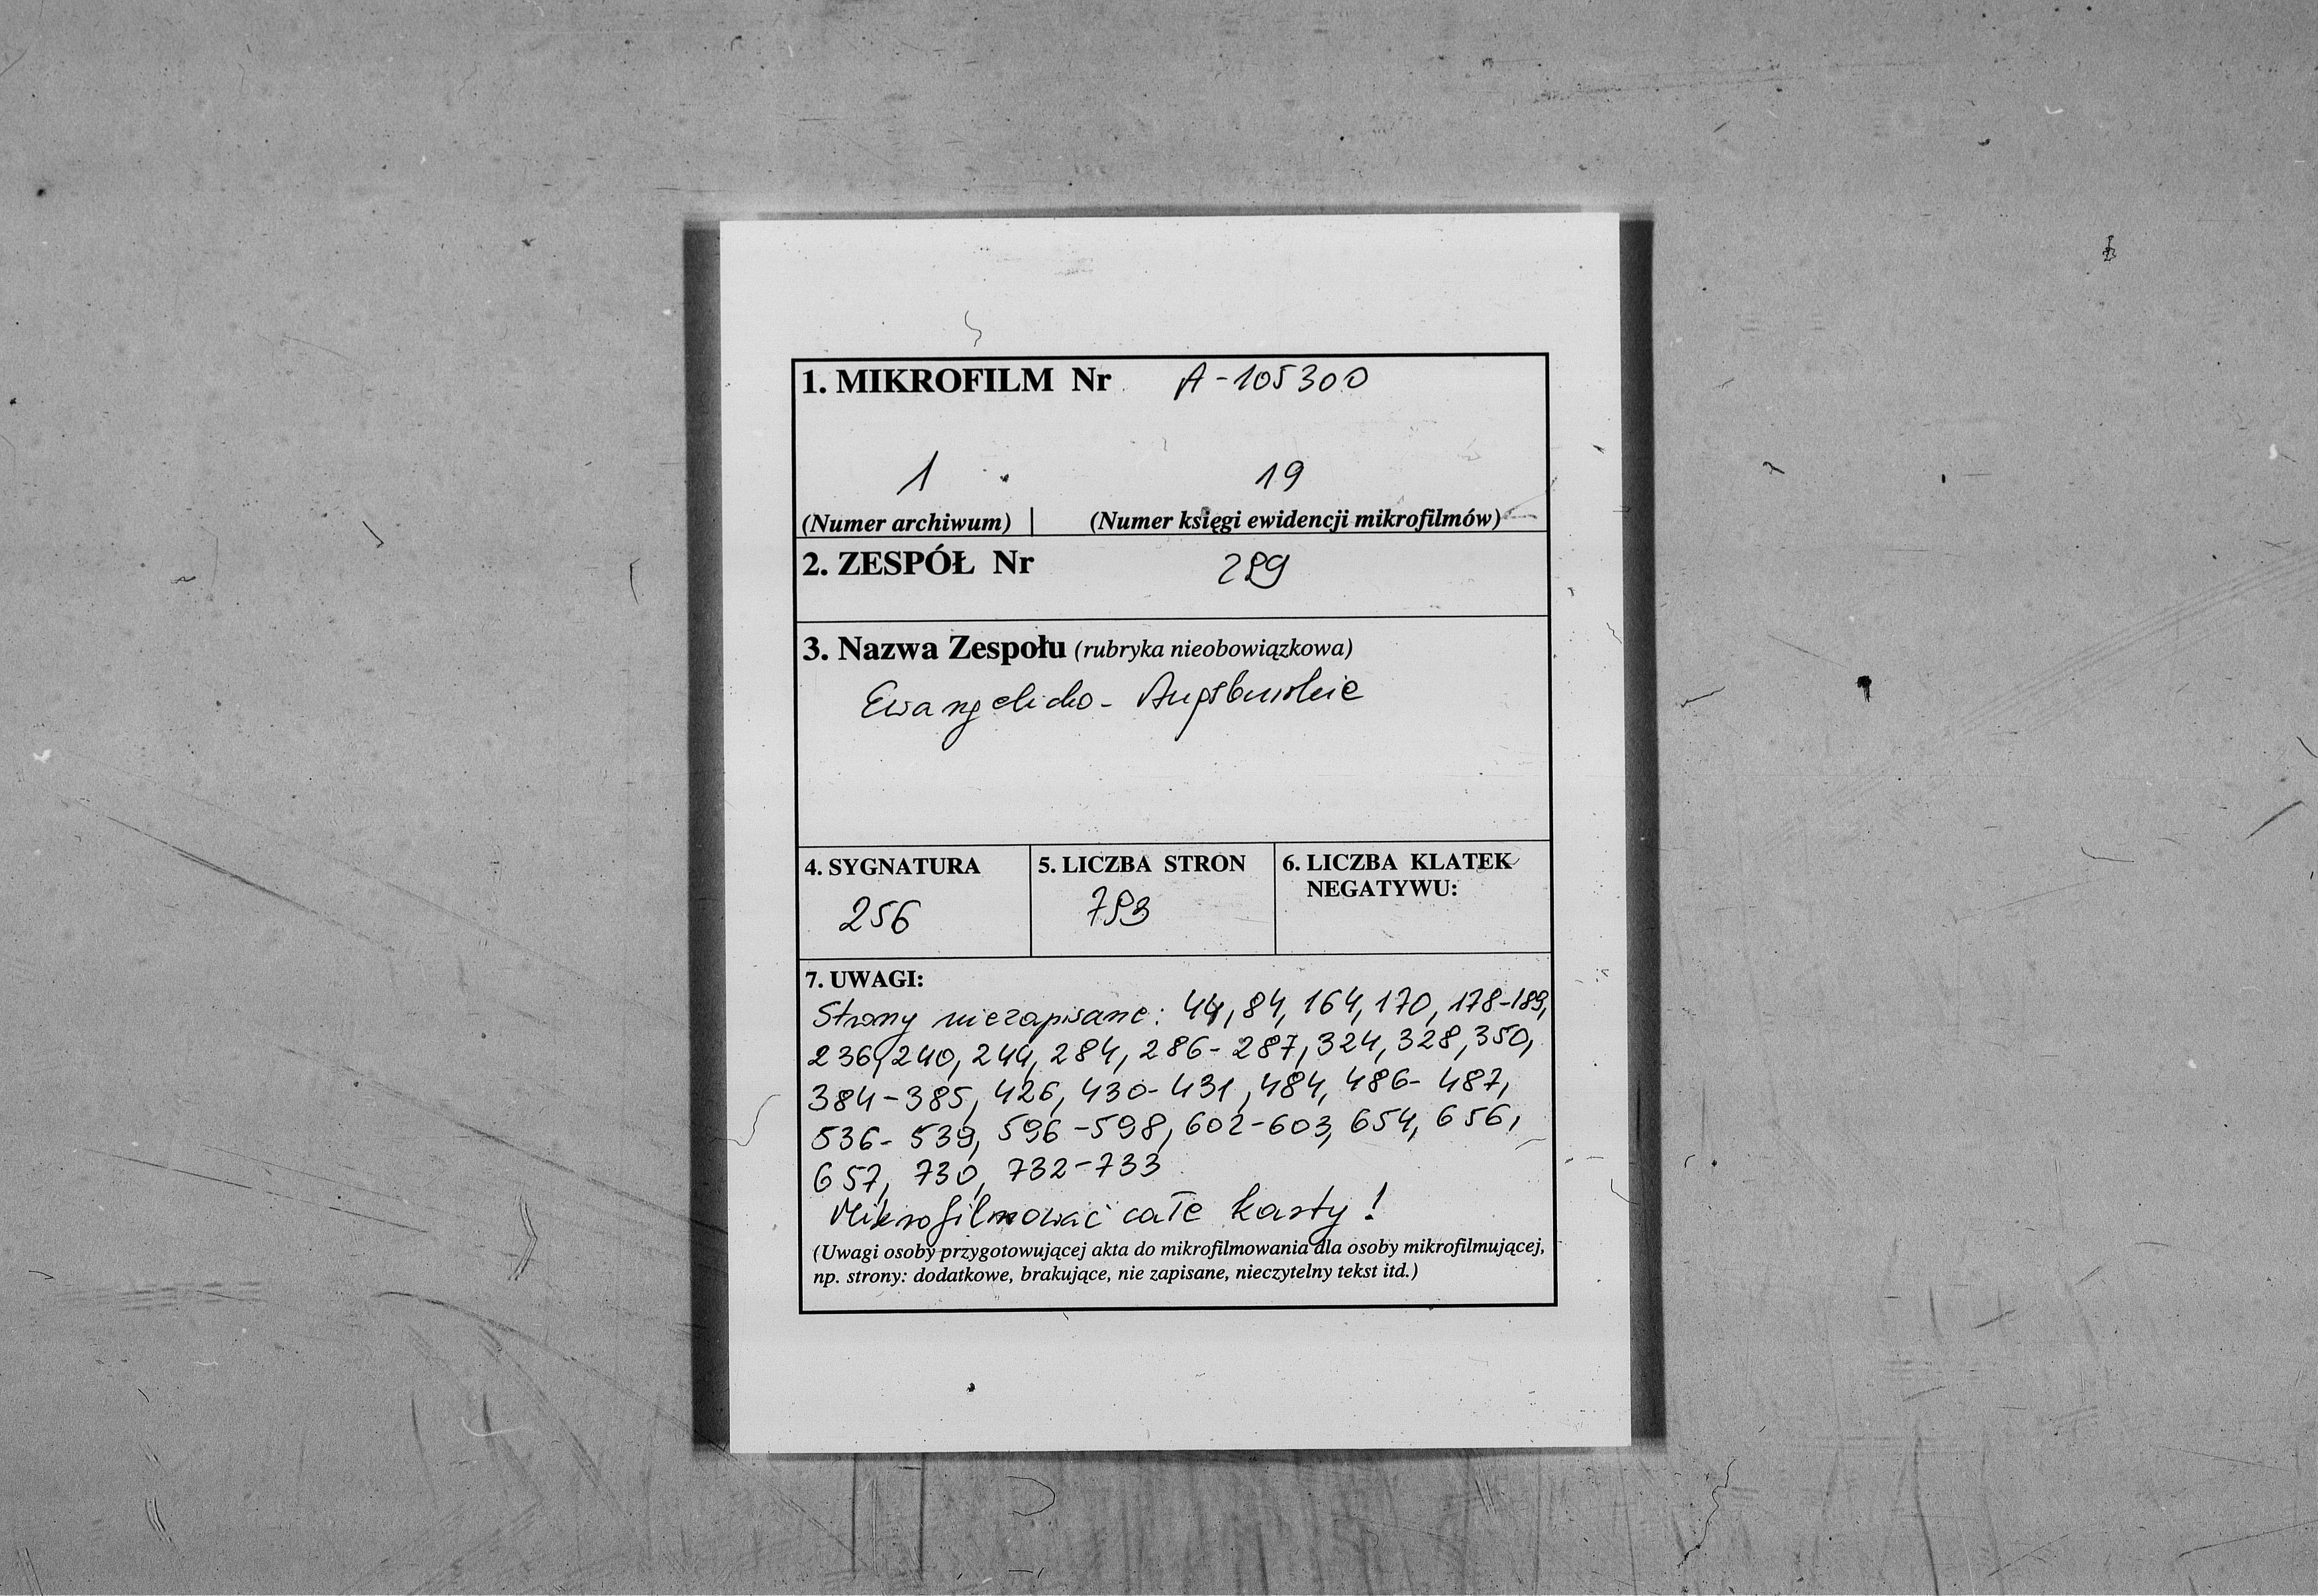 1. MIKROFILM Nr A-105300
1 19
(Numer archiwum) | (Numer księgi ewidencji mikrofilmów)
2. ZESPÓŁ Nr 289
3. Nazwa Zespołu (rubryka nieobowiązkowa)
Ewangelicko - Augsburskie
4. SYGNATURA 5. LICZBA STRON 6. LICZBA KLATEK
NEGATYWU:
256 793
7. UWAGI:
Strony niezapisane: 44, 84, 164, 170, 178-189,
236, 240, 244, 284, 286-287, 324, 328, 350,
384-385, 426, 430-431, 484, 486-487,
536-539, 596-598, 602-603, 654, 656,
657, 730, 732-733
Mikrofilmować całe karty!
(Uwagi osoby przygotowującej akta do mikrofilmowania dla osoby mikrofilmującej,
np. strony: dodatkowe, brakujące, nie zapisane, nieczytelny tekst itd.)